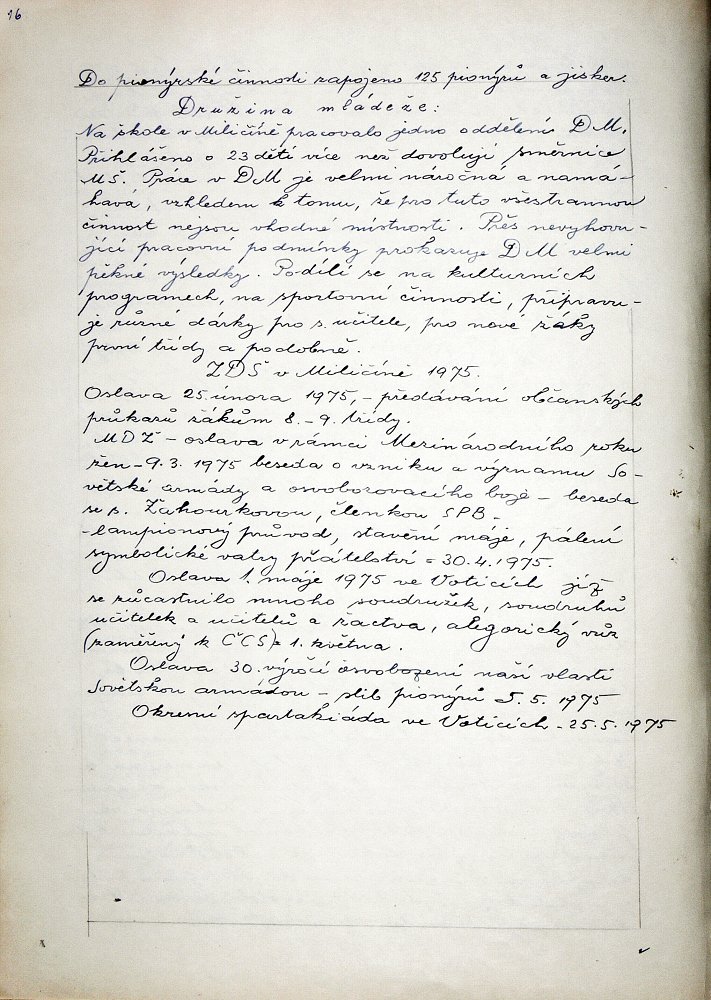 16
Do pionýrské činnosti zapojeno 125 pionýrů a jisker.
Družina mládeže:
Na škole v Miličíně pracovalo jedno oddělení D M.
Přihlášeno o 23 dětí více než dovolují směrnice
MŠ. Práce v D M je velmi náročná a namá-
havá, vzhledem k tomu, že pro tuto všestrannou
činnost nejsou vhodné místnosti. Přes nevyhovu-
jící pracovní podmínky prokazuje D M velmi
pěkné výsledky. Podílí se na kulturních
programech, na sportovní činnosti, připravu-
je různé dárky pro s. učitele, pro nové žáky
první třídy a podobně.
ZDŠ v Miličíně 1975.
Oslava 25. února 1975, - předávání občanských
průkazů žákům 8. - 9. třídy.
MDŽ - oslava v rámci Mezinárodního roku
žen - 9.3. 1975 beseda o vzniku a významu So-
větské armády a osvobozovacího boje - beseda
se s. Zahourkovou, členkou SPB -
- lampionový průvod, stavění máje, pálení
symbolické vatry přátelství = 30.4.1975.
Oslava 1. máje 1975 ve Voticích jíž
se zúčastnilo mnoho soudružek, soudruhů
učitelek a učitelů a žactva, alegorický vůz
(zaměřený k ČČS) = 1. května.
Oslava 30. výročí osvobození naší vlasti
Sovětskou armádou - slib pionýrů 5. 5. 1975
Okresní spartakiáda ve Voticích - 25.5.1975